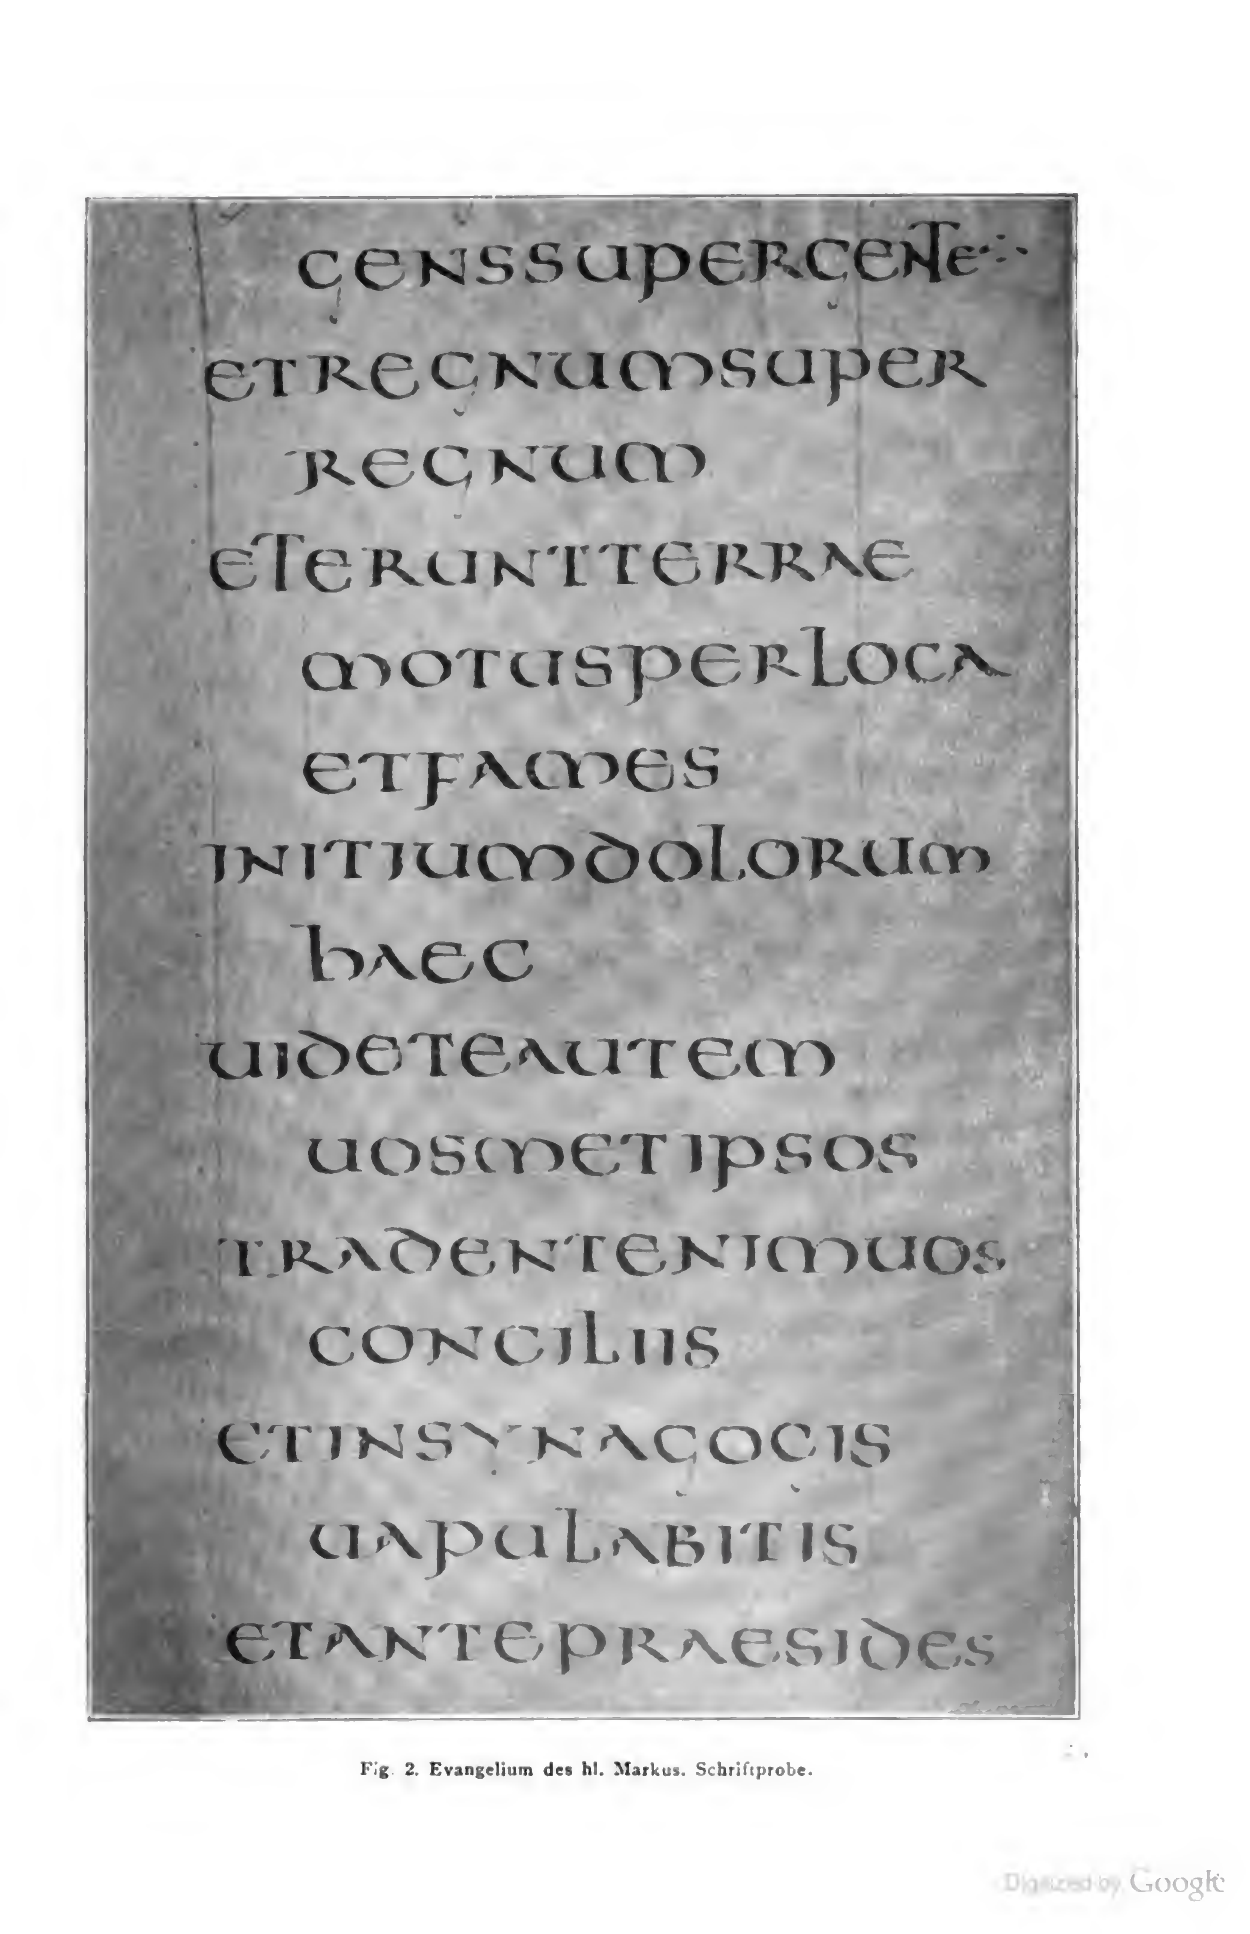 genssupergente
etregnumsuper
regnum
eteruntterrae
motusperloca
etfames
initiumdolorum
haec
uideteautem
uosmetipsos
tradentenimuos
conciliis
etinsynagogis
uapulabitis
etantepraesides
Fig. 2. Evangelium des hl. Markus. Schriftprobe.
Digitized by Google